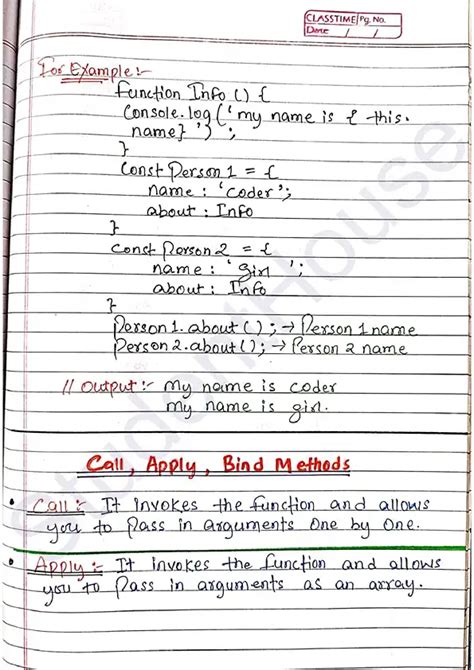 CLASSTIME Pg. No.
Date / /
For Example :-
function Info () {
Console.log ('my name is { this.
name} ') ;
}
Const Person 1 = {
name : 'coder';
about : Info
}
Const Person 2 = {
name : 'girl ';
about : Info
}
Person 1. about ( ) ; → Person 1 name
Person 2. about ( ) ; → Person 2 name
// Output :- my name is coder
my name is girl.
Call, Apply, Bind Methods
• Call :- It invokes the function and allows
you to Pass in arguments One by One.
• Apply :- It invokes the function and allows
you to Pass in arguments as an array.
StudentHouse